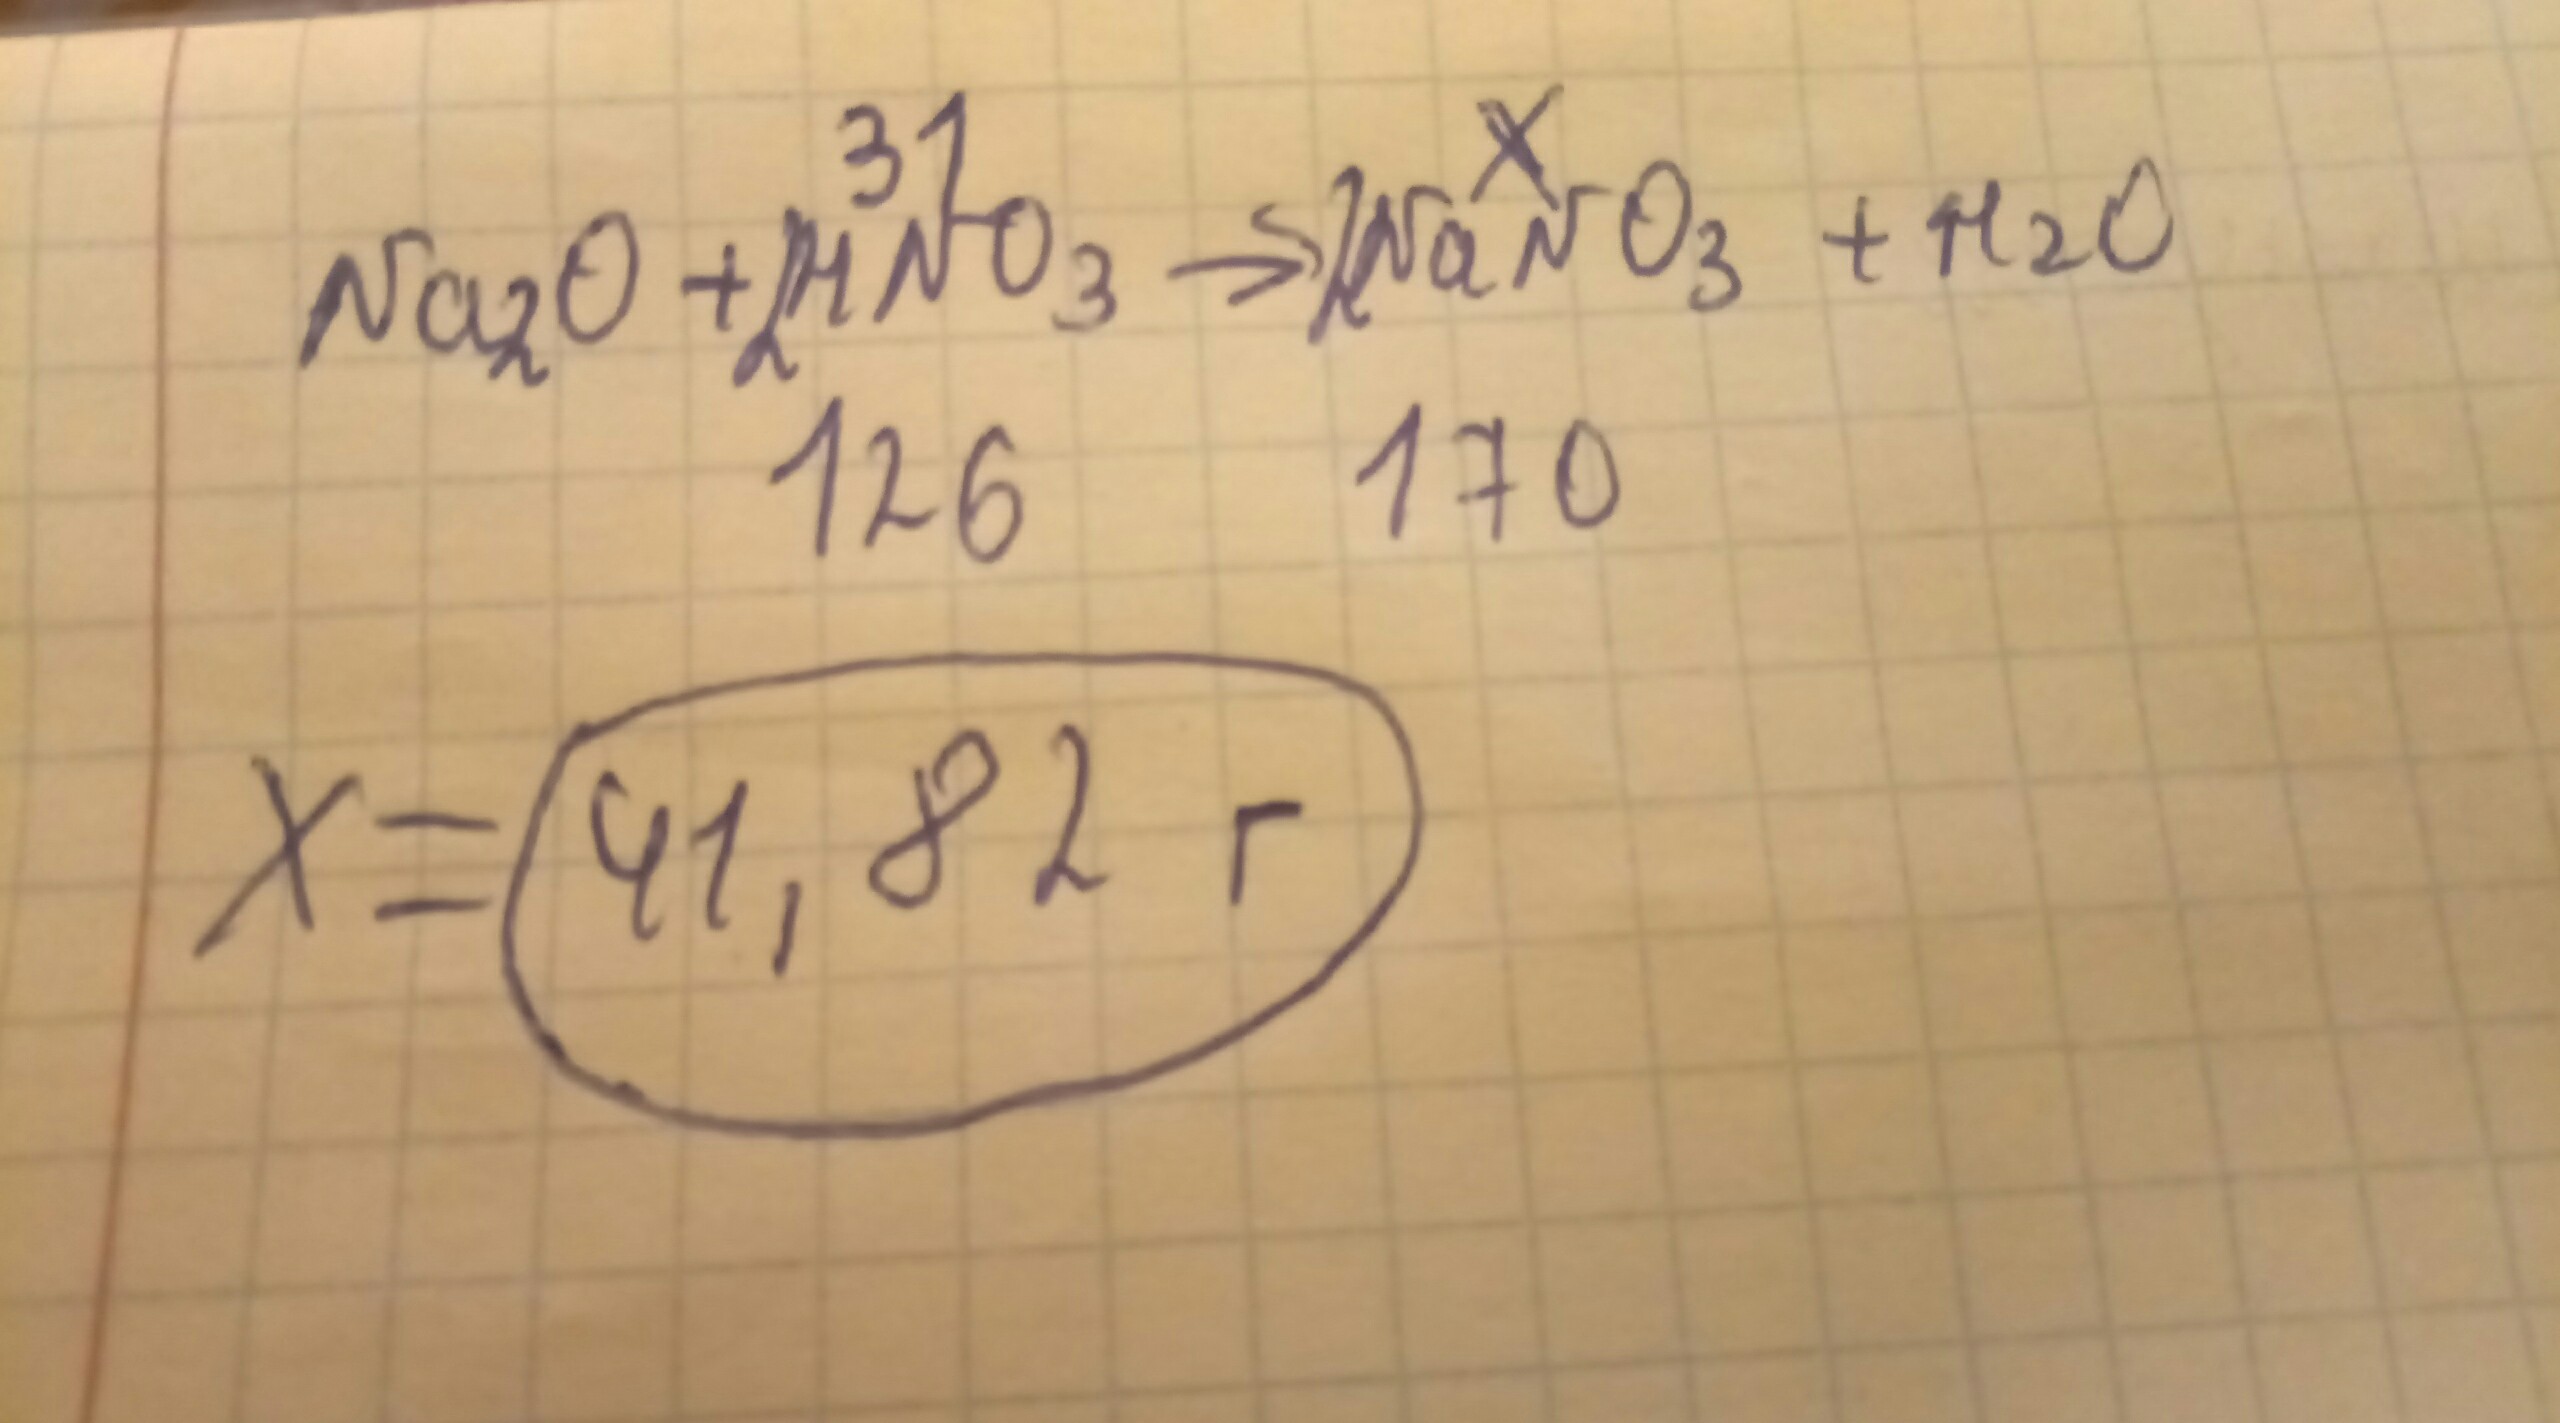 31 X
Na2O + 2HNO3 → 2NaNO3 + H2O
126 170
X = 41,82 г